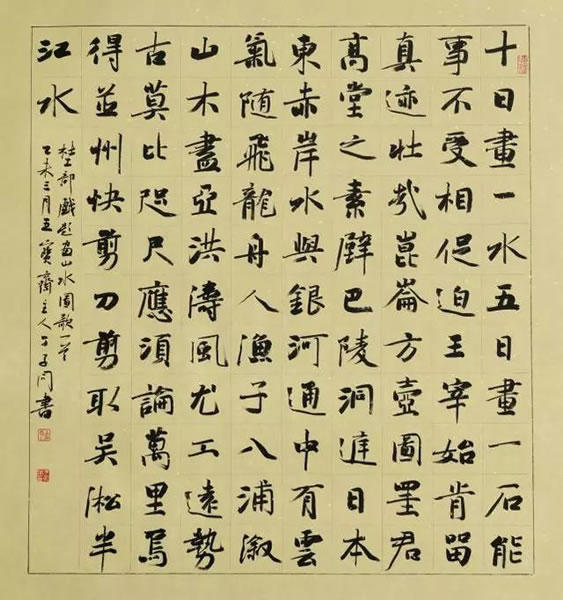 十日畫一水五日畫一石能
事不受相促迫王宰始肯留
真迹壮哉崑崙方壺圖罣君
高堂之素壁巴陵洞庭日本
東赤岸水與銀河通中有雲
氣随飛龍舟人漁子入浦溆
山木盡亞洪濤風尤工遠勢
古莫比咫尺應須論萬里焉
得並州快剪刀剪取吴淞半
江水
杜工部戲題畫山水圖歌一首
乙未三月五寶齋主人書